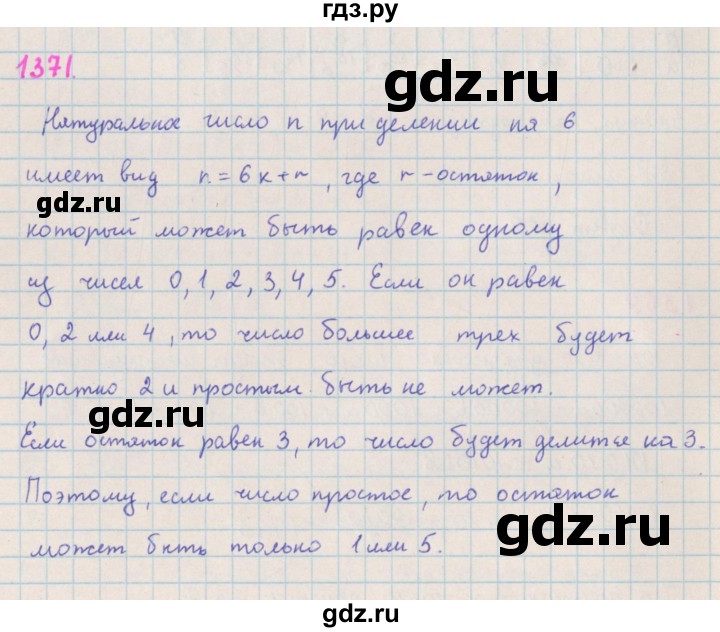 гдз.ру
1371.
gdz.ru
Натуральное число n при делении на 6
имеет вид n = 6k + r, где r - остаток,
gdz.ru
который может быть равен одному
из чисел 0, 1, 2, 3, 4, 5. Если он равен
0, 2 или 4, то число большее трех будет
кратно 2 и простым быть не может.
gdz.ru
Если остаток равен 3, то число будет делится на 3.
Поэтому, если число простое, то остаток
gdz.ru
может быть только 1 или 5.
gdz.ru